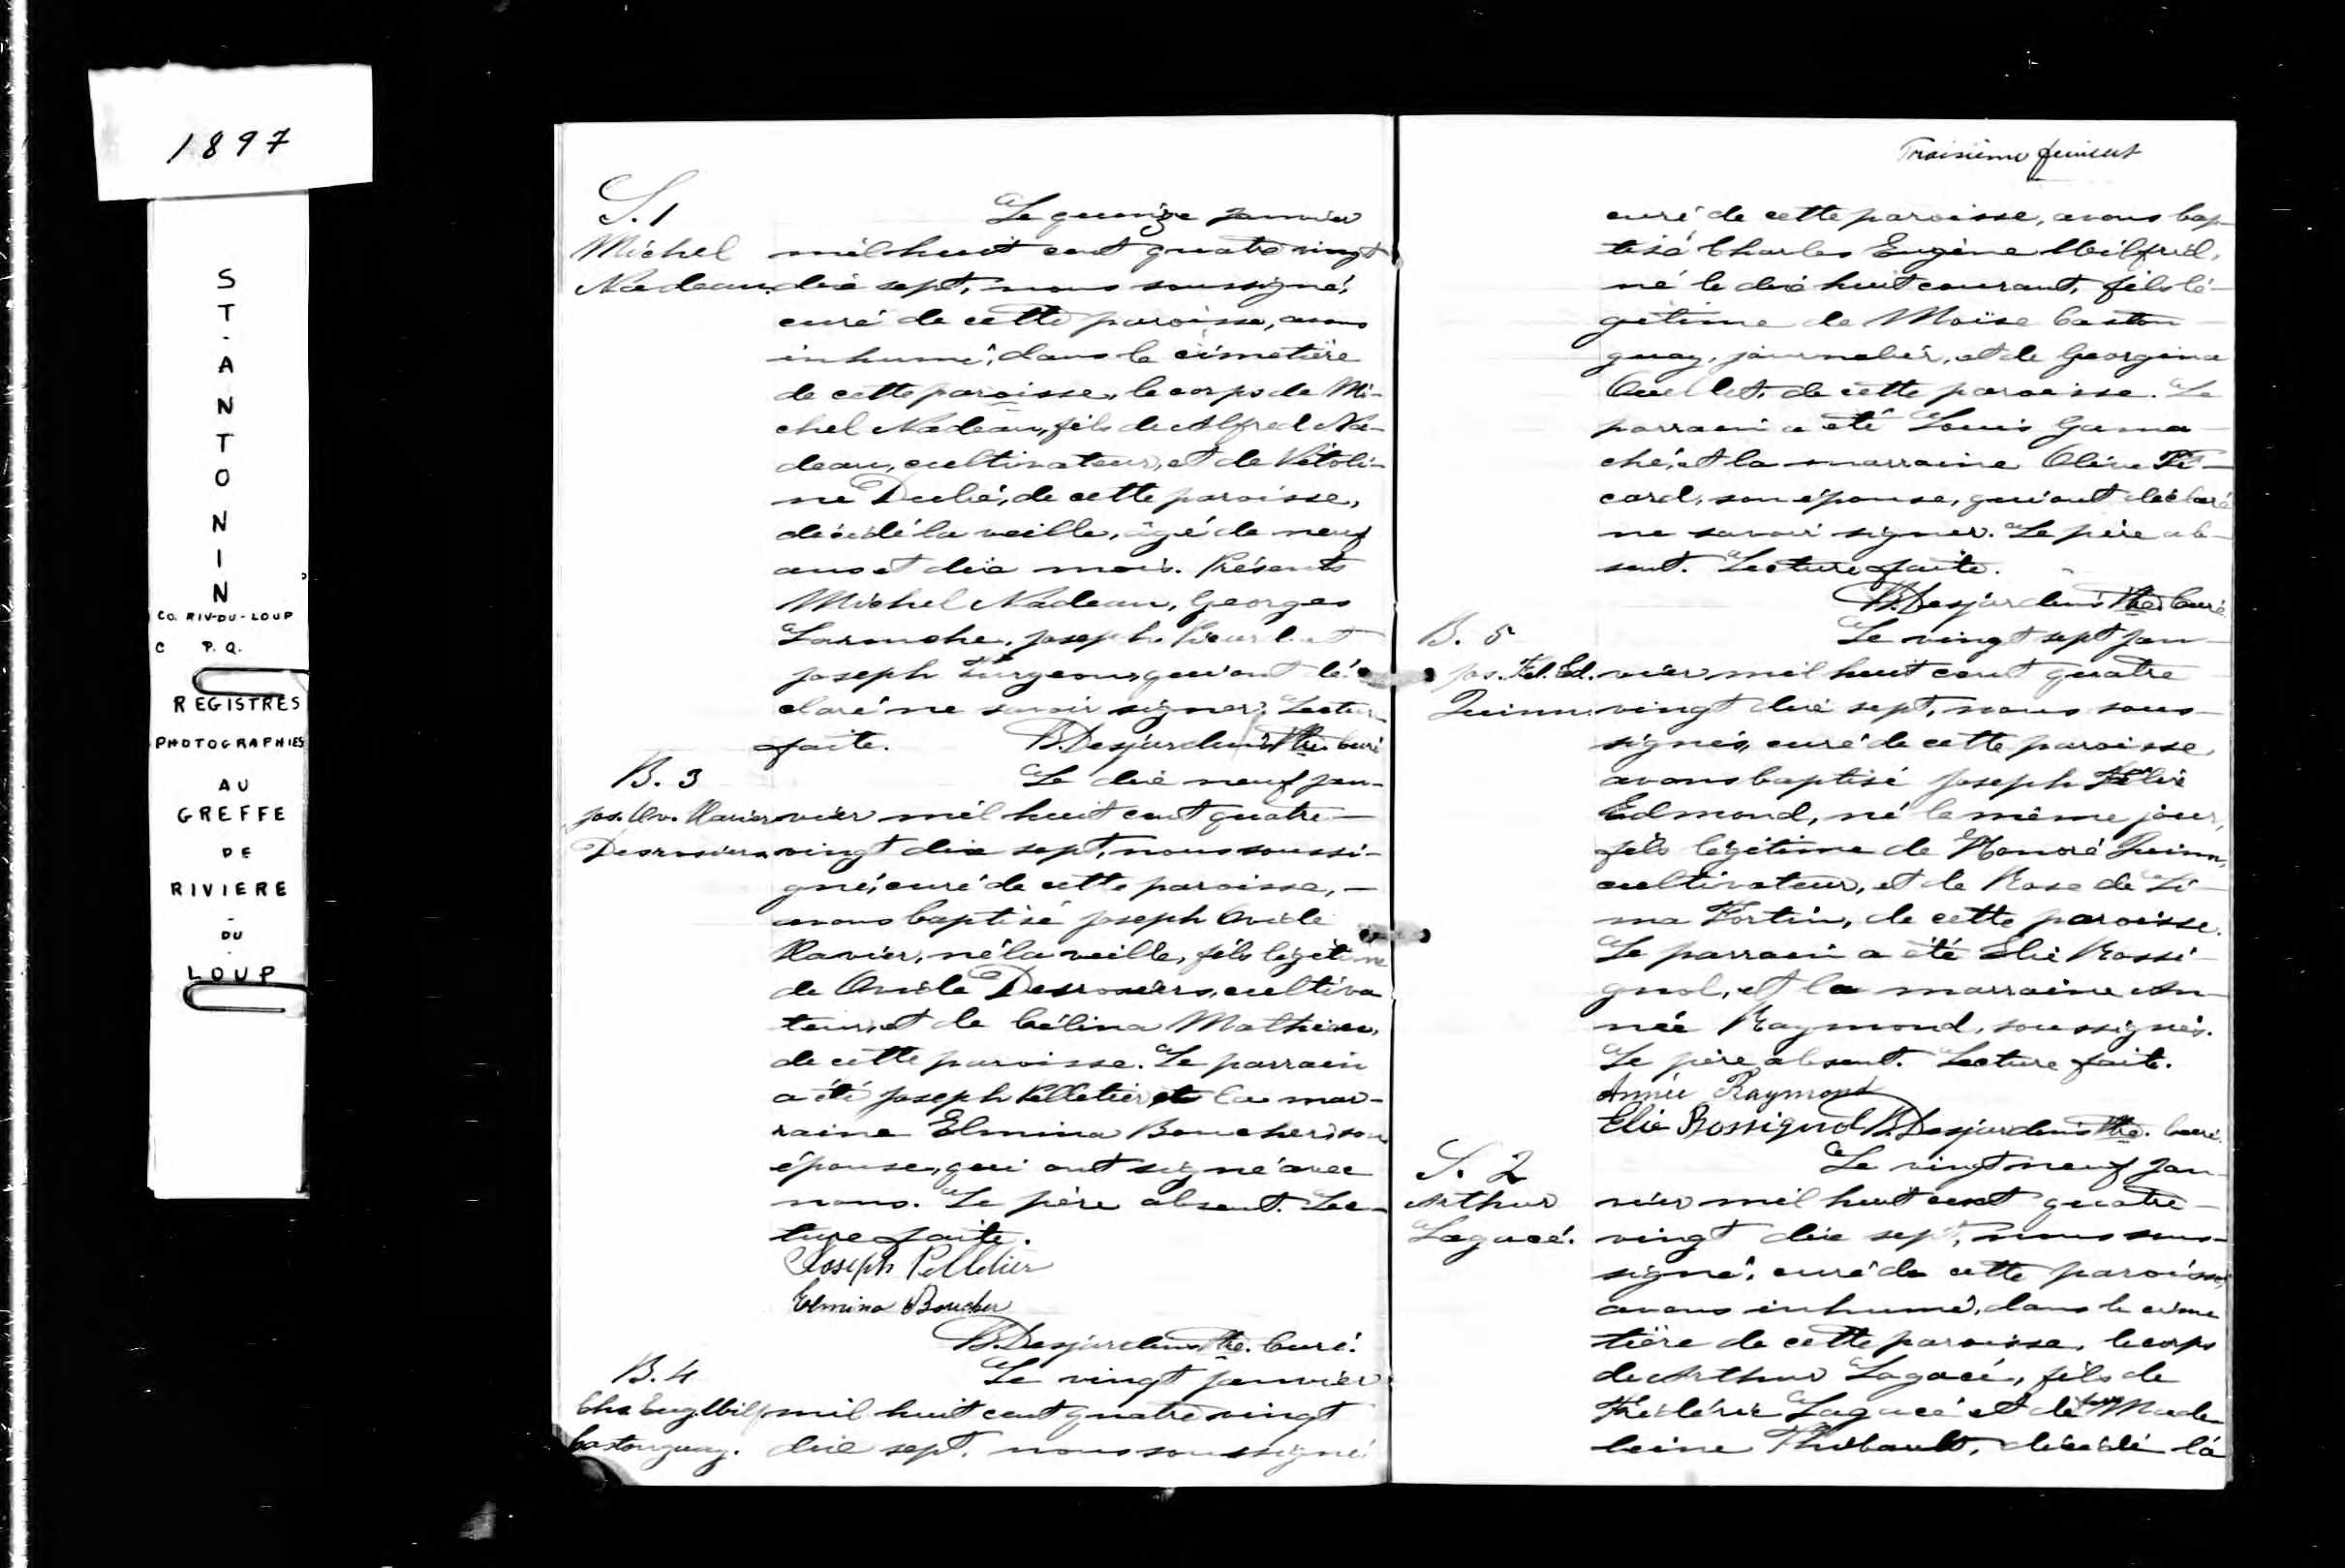 1897
ST. ANTONIN
CO. RIV-DU-LOUP
C P. Q.
REGISTRES
PHOTOGRAPHIES
AU
GREFFE
DE
RIVIERE
-
DU
-
LOUP
S. 1
Michel
Nadeau.
Le quinze janvier
mil huit cent quatre vingt
dix sept, nous soussigné,
curé de cette paroisse, avons
inhumé, dans le cimetière
de cette paroisse, le corps de Mi-
chel Nadeau, fils de Alfred Na-
deau, cultivateur, et de Vitoli-
ne Dubé, de cette paroisse,
décédé la veille, âgé de neuf
ans et dix mois. Présents
Michel Nadeau, Georges
Larouche, Joseph et
Joseph Turgeon, qui ont dé-
claré ne savoir signer. Lecture
faite. B. Desjardins Ptre. curé
B. 3
Jos. Ov. Xavier
Desrosiers
Le dix neuf jan-
vier mil huit cent quatre-
vingt dix sept, nous soussi-
gné, curé de cette paroisse, -
avons baptisé Joseph Ovide
Xavier, né la veille, fils légitime
de Ovide Desrosiers, cultiva
teur, et de Célina Mathieu,
de cette paroisse. Le parrain
a été Joseph Pelletier et la mar-
raine Elmina Boucher, son
épouse, qui ont signé avec
nous. Le père absent. Lec-
ture faite.
Joseph Pelletier
Elmina Boucher
B. Desjardins Ptre. Curé.
B. 4
Chs Eug. Wilf
Castonguay.
Le vingt janvier
mil huit cent quatre vingt
dix sept, nous soussigné
Troisième feuillet
curé de cette paroisse, avons bap-
tisé Charles Eugène Wilfrid,
né le dix huit courant, fils lé-
gitime de Moïse Caston-
guay, journalier, et de Georgina
Ouellet, de cette paroisse. Le
parrain a été Louis Gama-
che, et la marraine Olive Pi-
card, son épouse, qui ont déclaré
ne savoir signer. Le père ab-
sent. Lecture faite.
B. Desjardins Ptre. Curé
B. 5
Jos. Fel. Ed.
Quinn.
Le vingt sept jan-
vier mil huit cent quatre
vingt dix sept, nous sous-
signé, curé de cette paroisse,
avons baptisé Joseph Félix
Edmond, né le même jour,
fils légitime de Honoré Quinn,
cultivateur, et de Rose de Li-
ma Fortin, de cette paroisse.
Le parrain a été Elie Rossi-
gnol, et la marraine An-
née Raymond, soussignés.
Le père absent. Lecture faite.
Année Raymond
Elie Rossignol B. Desjardins Ptre. Curé.
S. 2
Arthur
Lagacé.
Le vingt neuf jan-
vier mil huit cent quatre-
vingt dix sept, nous sous-
signé, curé de cette paroisse,
avons inhumé, dans le cime
tière de cette paroisse, le corps
de Arthur Lagacé, fils de
Frédéric Lagacé et de feue Made
leine Thibault, décédé la